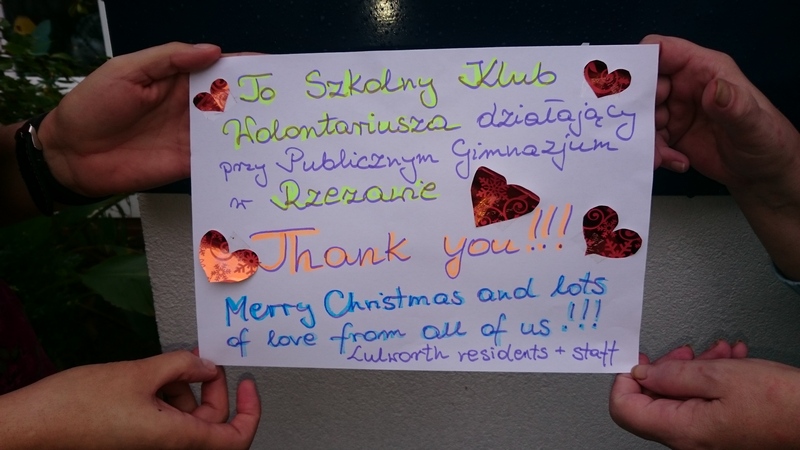 To Szkolny Klub
Wolontariusza działający
przy Publicznym Gimnazjum
w Rzezawie
Thank you!!!
Merry Christmas and lots
of love from all of us!!!
Lulworth residents + staff